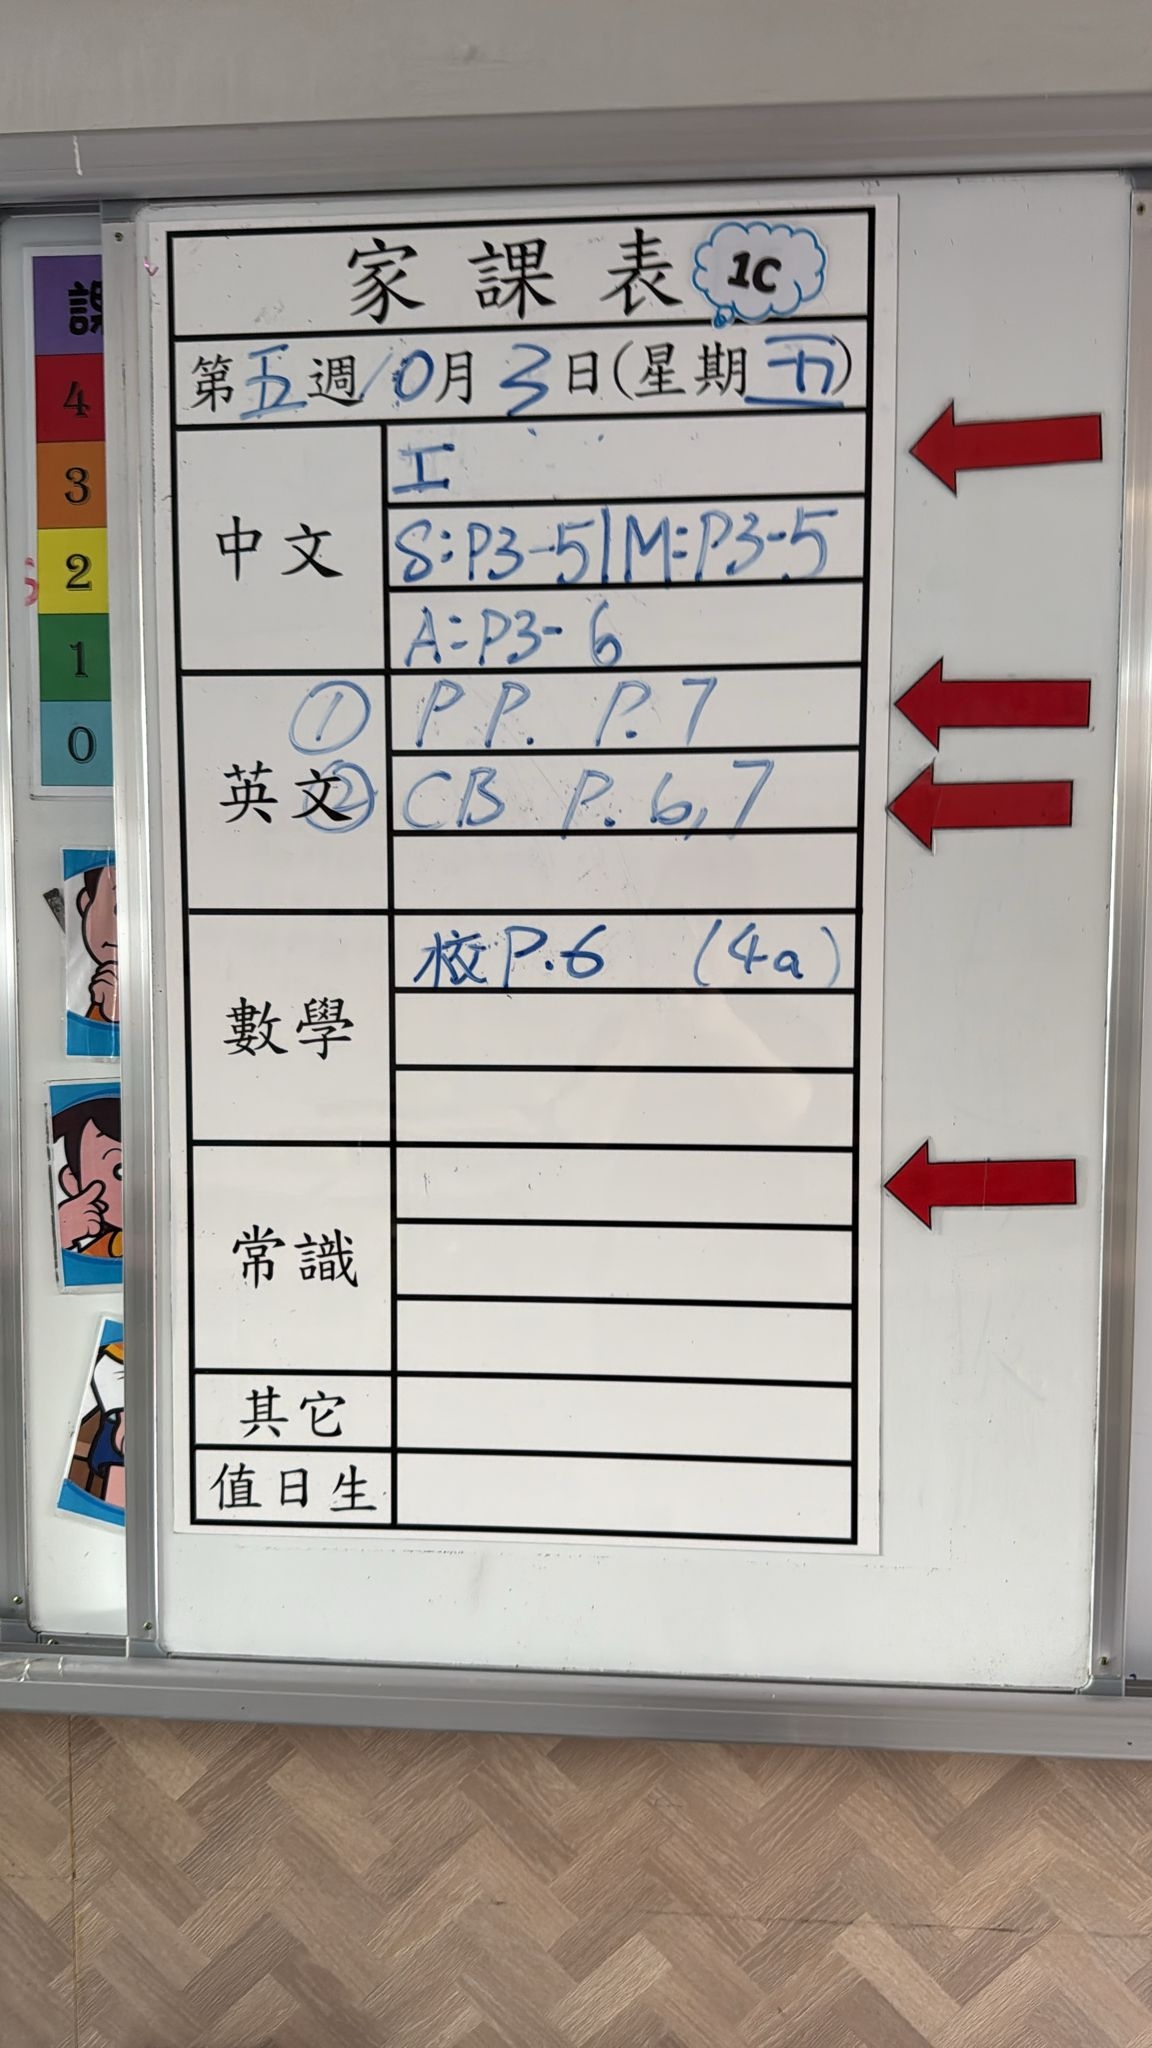 家課表 1C
第五週 10月3日(星期五)
中文
工
S:P3-5|M:P3-5
A:P3-6
英文
① PP. P.7
② CB P.6,7
數學
校P.6 (4a)
常識
其它
值日生
4
3
2
1
0